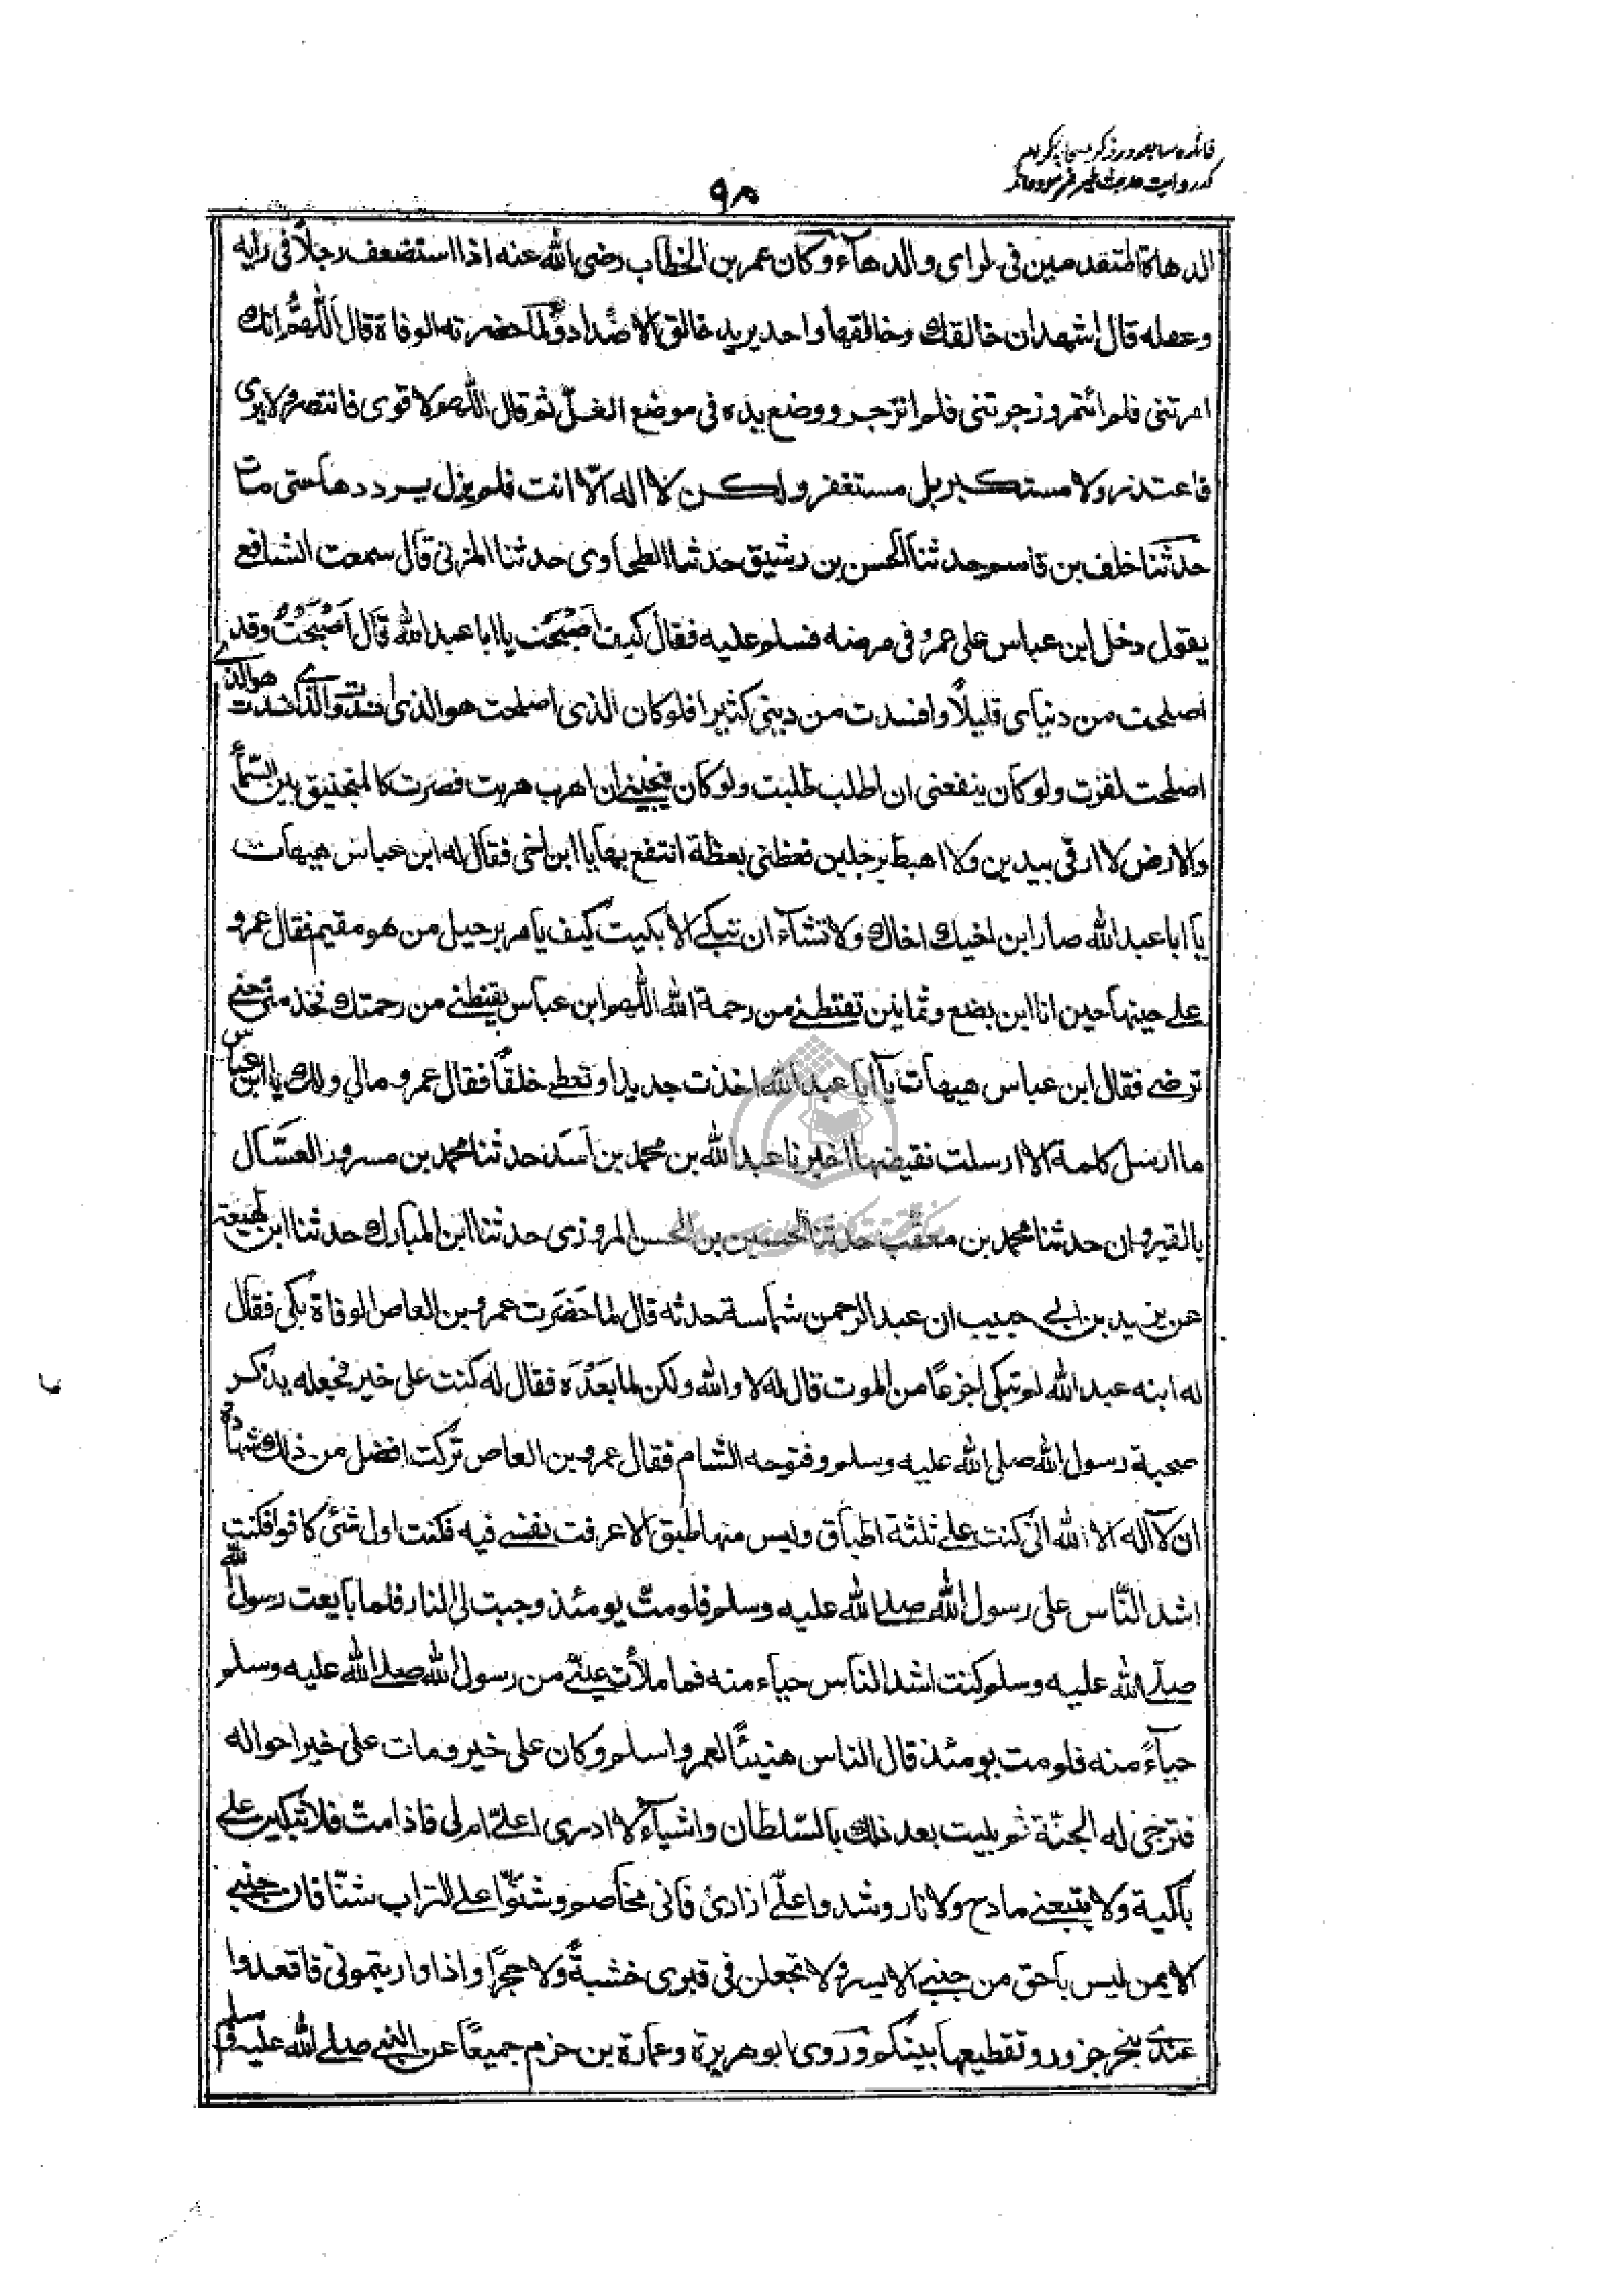 فائده سابعه در ذکر صحابه کرام
که روایت حدیث غدیر فرموده‌اند
۹۸
الدهاة المتقدمین فی الرای والدهآء وکان عمر بن الخطاب رضی الله عنه اذا استضعف رجلاً فی رایه
وعقله قال اشهد ان خالقك وخالقها واحد یرید خالق الاضداد ولما حضرته الوفاة قال اللّهم انك
امرتنی فلم ائتمر وزجرتنی فلم انزجر ووضع یده فی موضع الغلّ ثم قال اللهم لا قوی فانتصر ولا بری
فاعتذر ولا مستكبر بل مستغفر ولكن لا اله الّا انت فلم یزل یرددها حتی مات
حدثنا خلف بن قاسم حدثنا الحسن بن رشیق حدثنا الطحاوی حدثنا المزنی قال سمعت الشافعی
یقول دخل ابن عباس علی عمرو فی مرضه فسلم علیه فقال كیف اصبحت یا ابا عبد الله قال اصبحتُ وقد
اصلحت من دنیای قلیلاً وافسدت من دینی كثیرا فلو كان الذی اصلحت هو الذی افسدت والذی افسدت هو الذی
اصلحت لفزت ولو كان ینفعنی ان اطلب طلبت ولو كان ینجینی ان اهرب هربت فصرت كالمنجنیق بین السّمآء
والارض لا ارقی بیدین ولا اهبط برجلین فعظنی بعظة انتفع بها یا ابن اخی فقال له ابن عباس هیهات
یا ابا عبد الله صار ابن اخیك اخاك ولا تشآء ان تبكی الا بكیت كیف یامر برحیل من هو مقیم فقال عمرو
علی حینها حین انا ابن بضع وثمانین تقنطنی من رحمة الله اللهم ابن عباس یقنطنی من رحمتك فخذ منی حتی
ترضی فقال ابن عباس هیهات یا ابا عبد الله اخذت جدیدا وتعطی خلقاً فقال عمرو مالی ولك یا ابن عباس
ما ارسل كلمة الا ارسلت نقیضها اخبرنا عبد الله بن محمد بن اسد حدثنا محمد بن مسرور العسّال
بالقیروان حدثنا محمد بن معتّب حدثنا الحسین بن الحسن المروزی حدثنا ابن المبارك حدثنا ابن لهیعة
عن یزید بن ابی حبیب ان عبد الرحمن شماسة حدثه قال لما حَضَرَت عمرو بن العاص الوفاة بكی فقال
له ابنه عبد الله لم تبكی اجزعًا من الموت قال له لا والله ولكن لما بَعْدَه فقال له كنت علی خیر فجعله یذكر
صحبة رسول الله صلی الله علیه وسلم وفتوحه الشام فقال عمرو بن العاص تركت افضل من ذلك شهادة
ان لا اله الا الله انی كنت علی ثلثة اطباق ولیس منها طبق الا عرفت نفسی فیه فكنت اول شئ كافرا فكنت
اشد النّاس علی رسول الله صلی الله علیه وسلم فلو متّ یومئذ وجبت لی النار فلما بایعت رسول الله
صلی الله علیه وسلم كنت اشد الناس حیاء منه فما ملأت عینی من رسول الله صلی الله علیه وسلم
حیآءً منه فلو مت یومئذ قال الناس هنیئًا لعمرو اسلم وكان علی خیر ومات علی خیر احواله
فترجی له الجنّة ثم بلیت بعد ذلك بالسّلطان واشیآء لا ادری اعلیّ ام لی فاذا متّ فلا تبكین علی
باكیة ولا یتبعنی مادح ولا نار وشدوا علیّ ازاری فانی مخاصم وشنّوا علی التراب شنّا فان جنبی
الایمن لیس باحق من جنبی الایسر ولا تجعلن فی قبری خشبةً ولا حجرًا واذا واریتمونی فاقعدوا
عندی نحر جزور وتقطیعها بینكم وروی ابو هریرة وعمارة بن حزم جمیعًا عن النبی صلی الله علیه وسلم